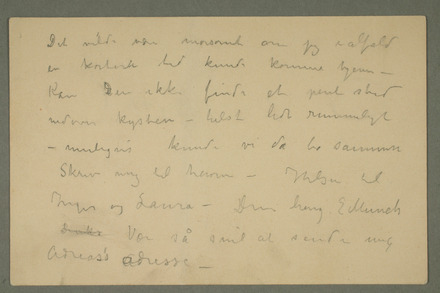 Det vilde være morsomt om jeg ialfald
en kortere tid kunde komme hjem –
Kan Du ikke finde et pent sted
ved kysten – helst lidt rummeligt
– muligvis kunde vi da bo sammen
Skriv mig til herom – Hilsen til
Inger og Laura – Din heng. E Munch
Vær så snil at sende mig
Adresse –